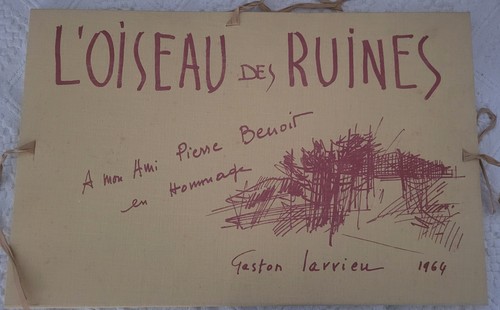 L'OISEAU DES RUINES
A mon Ami Pierre Benoit
en Hommage
Gaston Larrieu 1964